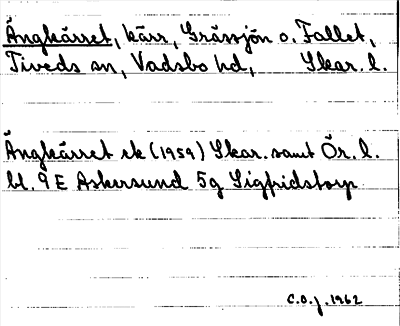 Ängkärret, kärr, Grässjön o. Fallet,
Tiveds sn, Vadsbo hd, Skar. l.
Ängkärret ek (1959) Skar. samt Ör. l.
bl. 9 E Askersund 5g Sigfridstorp
C.O.J. 1962